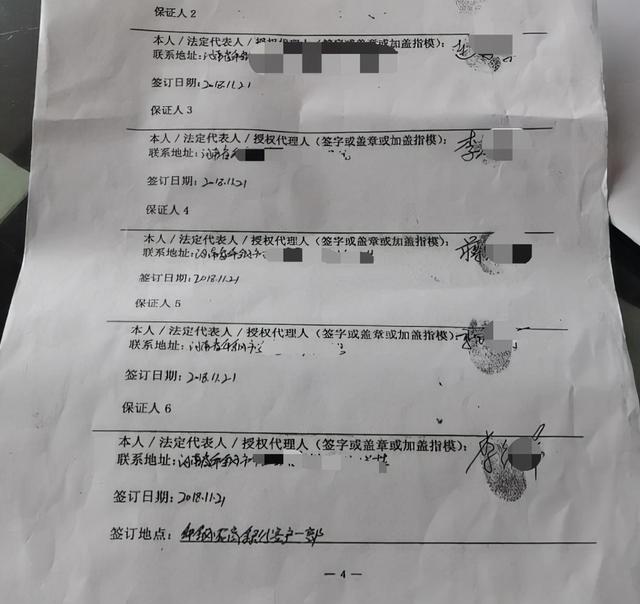 保证人 2
本人 / 法定代表人 / 授权代理人（签字或盖章或加盖指模）：
联系地址：河南省
签订日期：2018.11.21
保证人 3
本人 / 法定代表人 / 授权代理人（签字或盖章或加盖指模）： 李
联系地址：河南省
签订日期：2018.11.21
保证人 4
本人 / 法定代表人 / 授权代理人（签字或盖章或加盖指模）：
联系地址：河南省
签订日期：2018.11.21
保证人 5
本人 / 法定代表人 / 授权代理人（签字或盖章或加盖指模）：
联系地址：河南省
签订日期：2018.11.21
保证人 6
本人 / 法定代表人 / 授权代理人（签字或盖章或加盖指模）： 李
联系地址：河南省
签订日期：2018.11.21
签订地点：
— 4 —